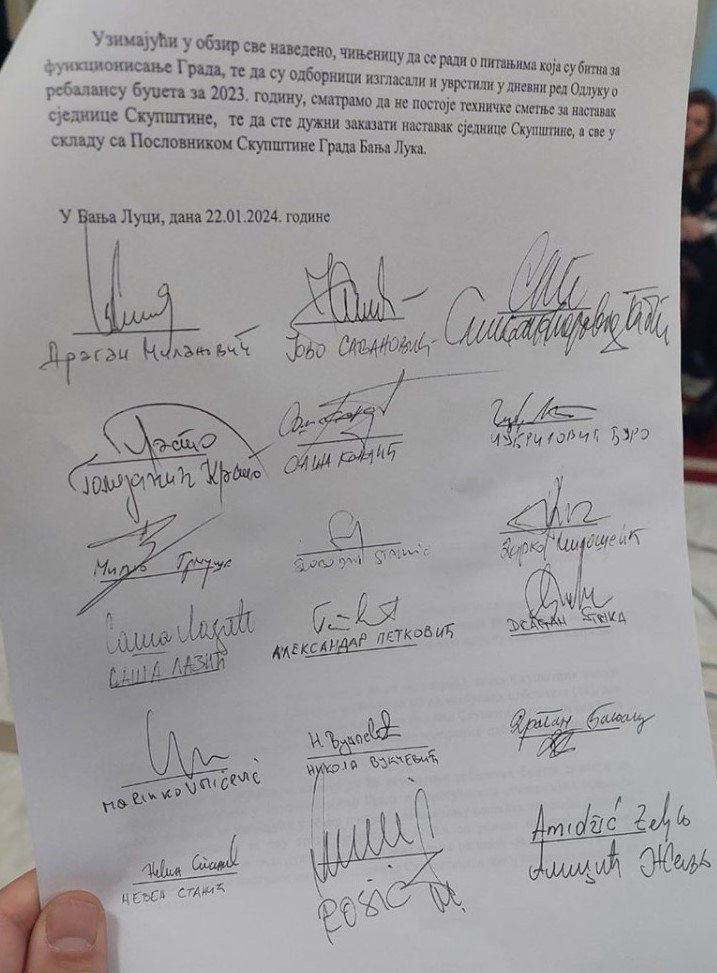 Узимајући у обзир све наведено, чињеницу да се ради о питањима која су битна за
функционисање Града, те да су одборници изгласали и уврстили у дневни ред Одлуку о
ребалансу буџета за 2023. годину, сматрамо да не постоје техничке сметње за наставак
сједнице Скупштине, те да сте дужни заказати наставак сједнице Скупштине, а све у
складу са Пословником Скупштине Града Бања Лука.
У Бања Луци, дана 22.01.2024. године
Драган Милановић
Јово Савановић
Крсто
Крсто
САША
ЧУБРИЛОВИЋ ЂУРО
SLOBODAN STANIĆ
Саша Лазић
САША ЛАЗИЋ
АЛЕКСАНДАР ПЕТКОВИЋ
DRAGAN ŠTRKA
MARINKO UMIČEVIĆ
НИКОЛА ВУКЧЕВИЋ
Драган
Невен Станић
НЕВЕН СТАНИЋ
ROSIĆ
Amidžić Željko
Амиџић Жељко